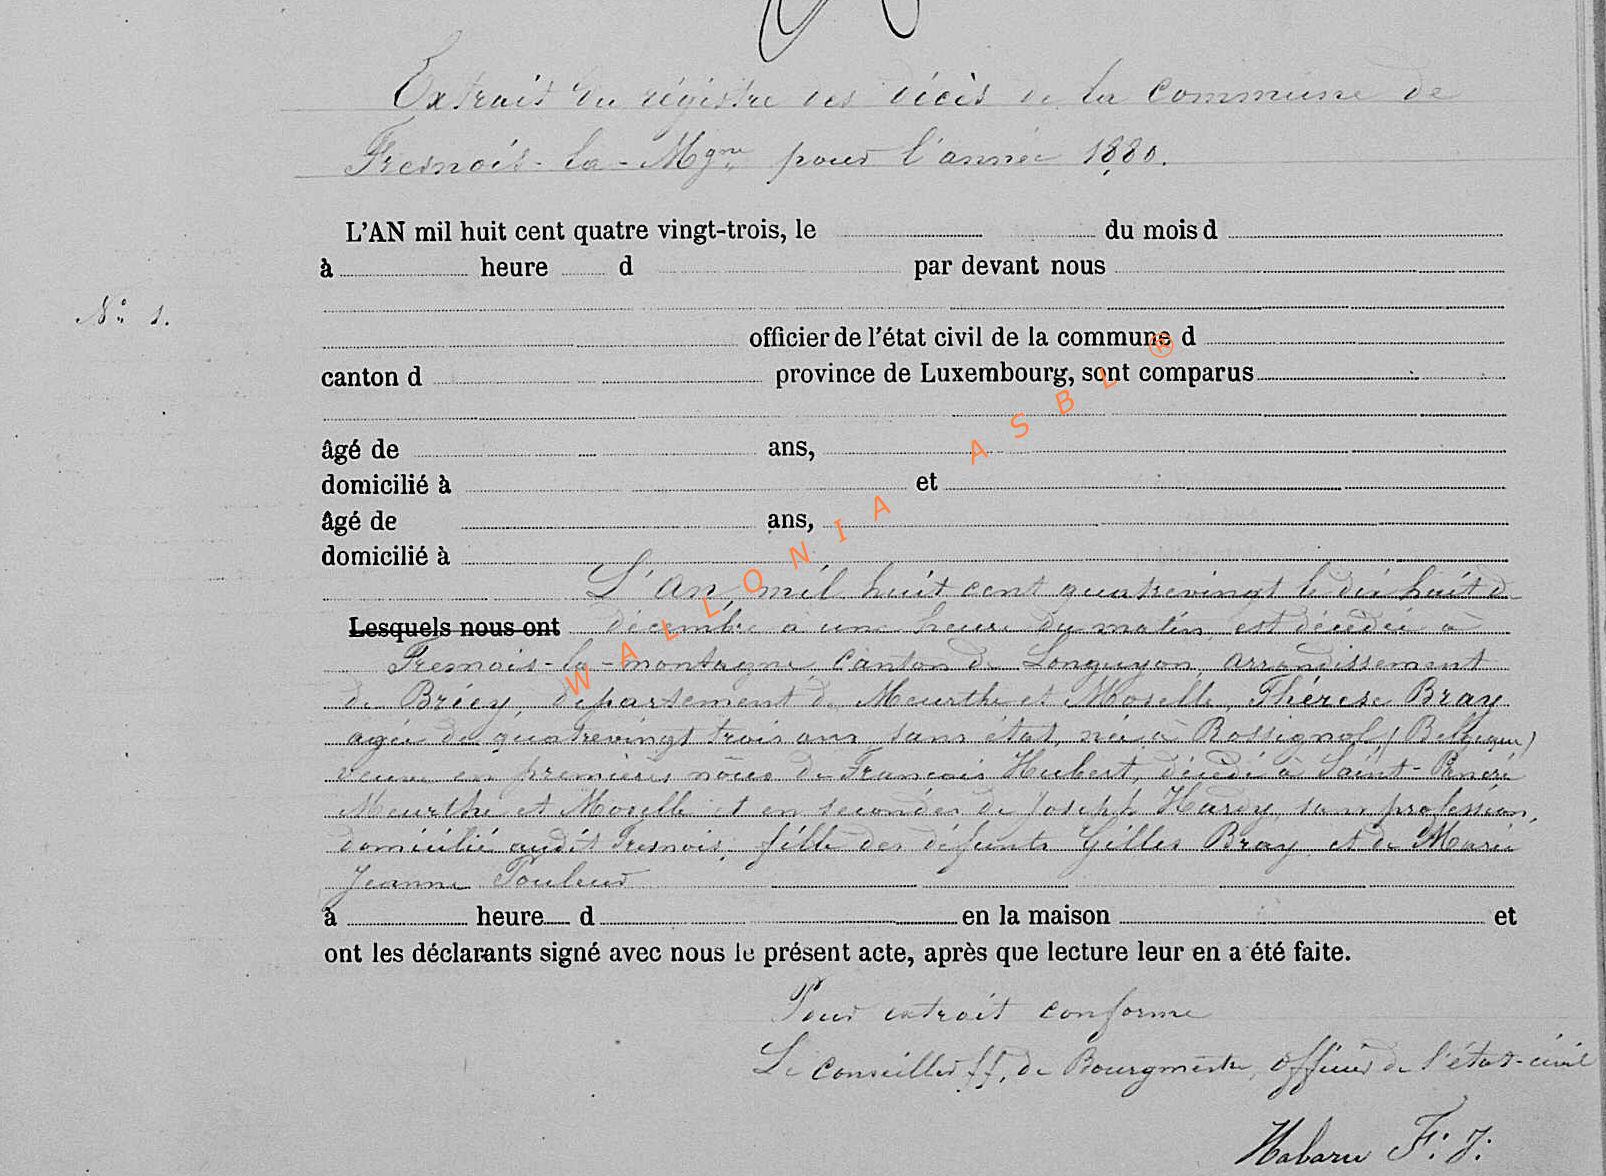 Extrait du régistre des décès de la commune de
Fresnois-la-Mgne pour l'année 1880.
L'AN mil huit cent quatre vingt-trois, le du mois d
à heure d par devant nous
N° 1.
officier de l'état civil de la commune d
canton d province de Luxembourg, sont comparus
âgé de ans,
domicilié à et
âgé de ans,
domicilié à
L'an mil huit cent quatrevingt le dix huit de
Lesquels nous ont décembre à une heure du matin, est décédée à
Fresnois-la-montagne, Canton de Longuyon, arrondissement
de Briey, département de Meurthe et Moselle, Thérèse Bray
agée de quatrevingt trois ans, sans état, née à Rossignol, (Belgique)
veuve en premières nôces de Francois Hubert, décédé à Saint-
Meurthe et Moselle et en secondes de Joseph Hardy, sans profession,
domicilié audit Fresnois, fille des défunts Gilles Bray et de Marie
Jeanne
à heure d en la maison et
ont les déclarants signé avec nous le présent acte, après que lecture leur en a été faite.
Pour extrait conforme
Le Conseiller ff. de Bourgmestre, officier de l'état-civil
Habaru F. J.
WALLONIA ASBL ®